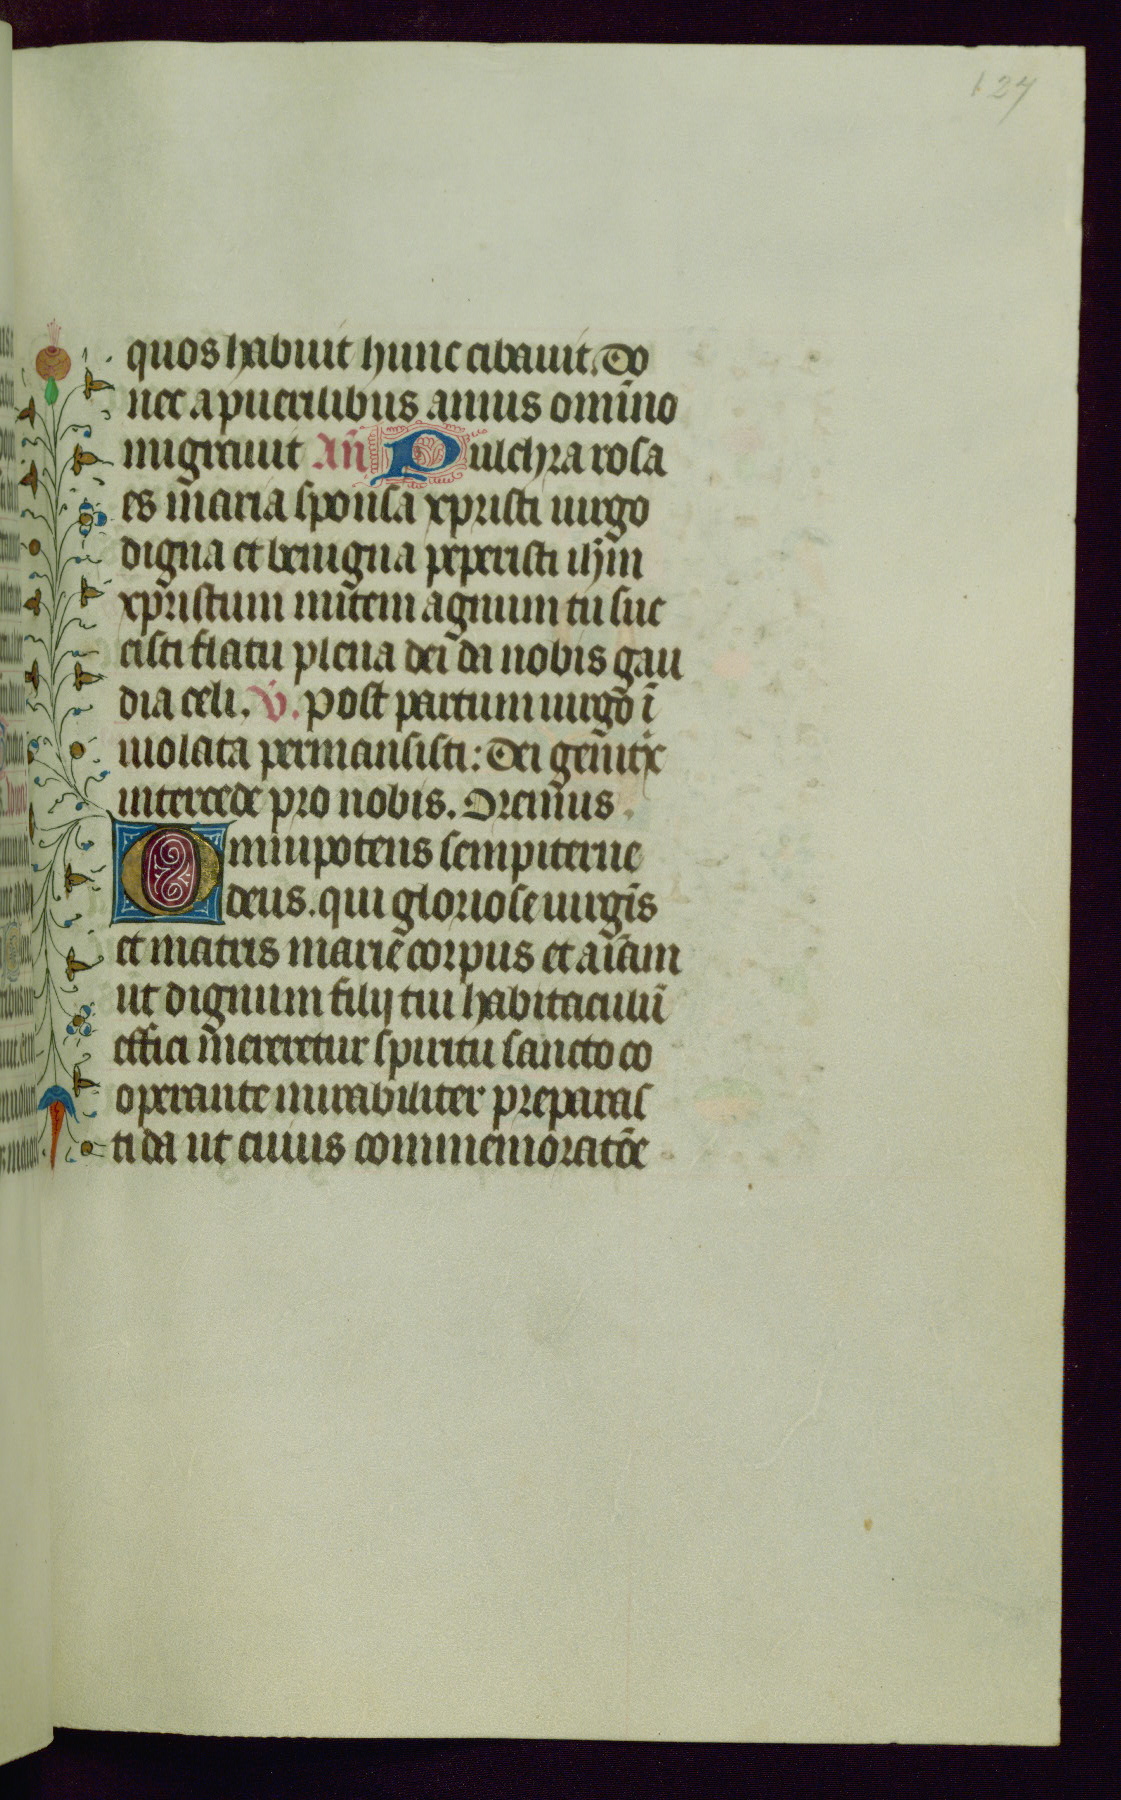 127
quos habuit hunc cibauit. Do
nec a puerilibus annis omīno
migrauit Añ Pulchra rosa
es maria sponsa xpristi uirgo
digna et benigna peperisti ihm̄
xpristum mitem agnum tu suc
cisti flatu plena dei da nobis gau
dia celi. V̄. post partum uirgo ī
uiolata permansisti: Dei genitx̄
intercede pro nobis. Oremus.
Omnipotens sempiterne
deus. qui gloriose uirgīs
et matris marie corpus et aīam
ut dignum filij tui habitaculū
effici mereretur spiritu sancto co
operante mirabiliter preparas
ti da ut cuius commemoratōe